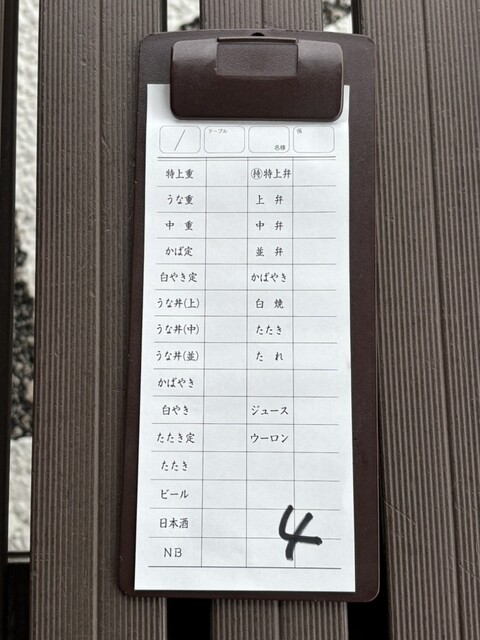 / テーブル 名様 係
特上重 ㊕特上弁
うな重 上弁
中重 中弁
かば定 並弁
白やき定 かばやき
うな丼(上) 白焼
うな丼(中) たたき
うな丼(並) たれ
かばやき
白やき ジュース
たたき定 ウーロン
たたき
ビール
日本酒
NB
4